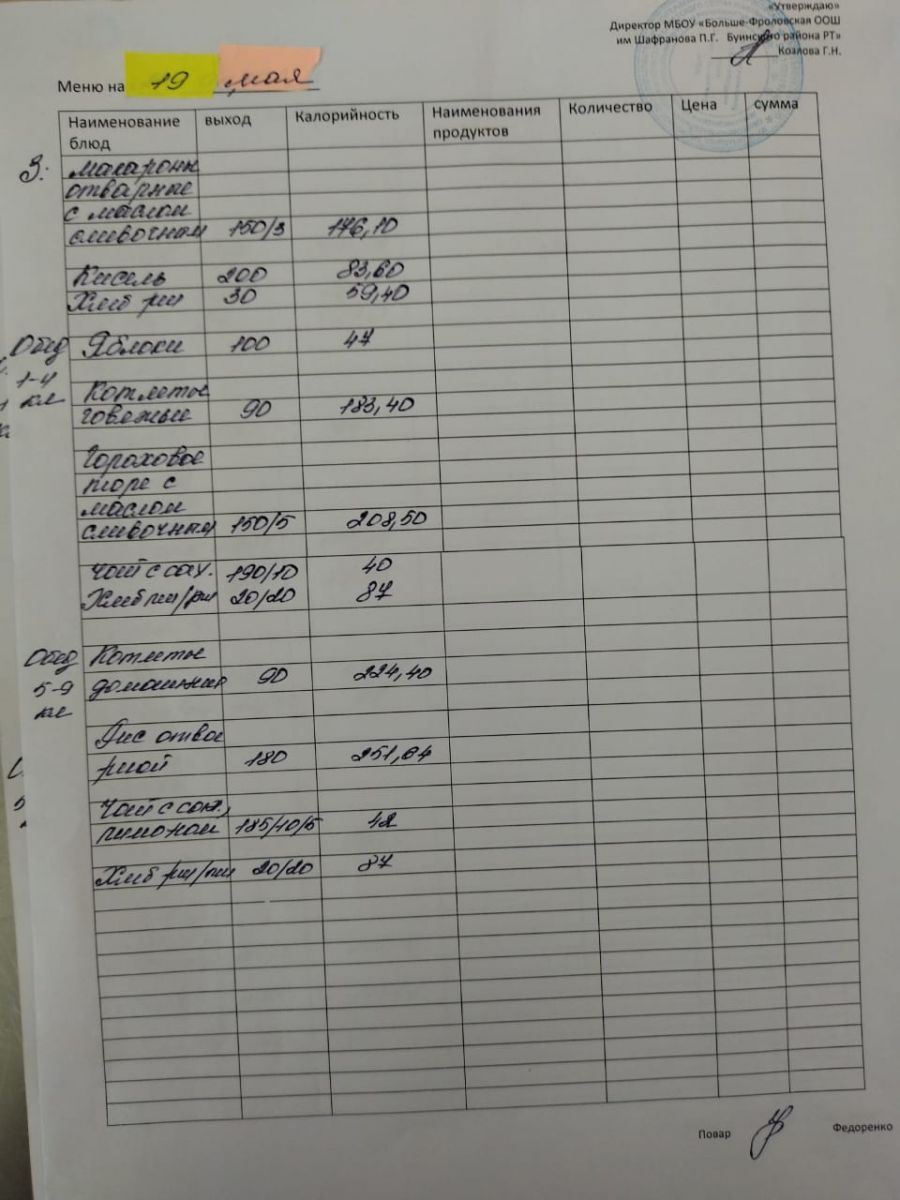 «Утверждаю»
Директор МБОУ «Больше-Фроловская ООШ
им Шафранова П.Г. Буинского района РТ»
Козлова Г.Н.
Меню на 19 мая
Наименование блюд выход Калорийность Наименования продуктов Количество Цена сумма
З:
макароны
отварные
с маслом
сливочным 150/3 176,10
Кисель 200 83,60
Хлеб рж 30 59,40
Обед Яблоки 100 47
1-4
кл
Котлеты
говяжьые 90 183,40
Гороховое
пюре с
маслом
сливочным 150/5 208,50
Чай с сах. 190/10 40
Хлеб пш/рж 20/20 87
Обед Котлеты
5-9 домашние 90 224,40
кл
Рис отва
рной 180 251,64
Чай с сах.,
лимоном 185/10/5 42
Хлеб рж/пш 20/20 87
Повар Федоренко